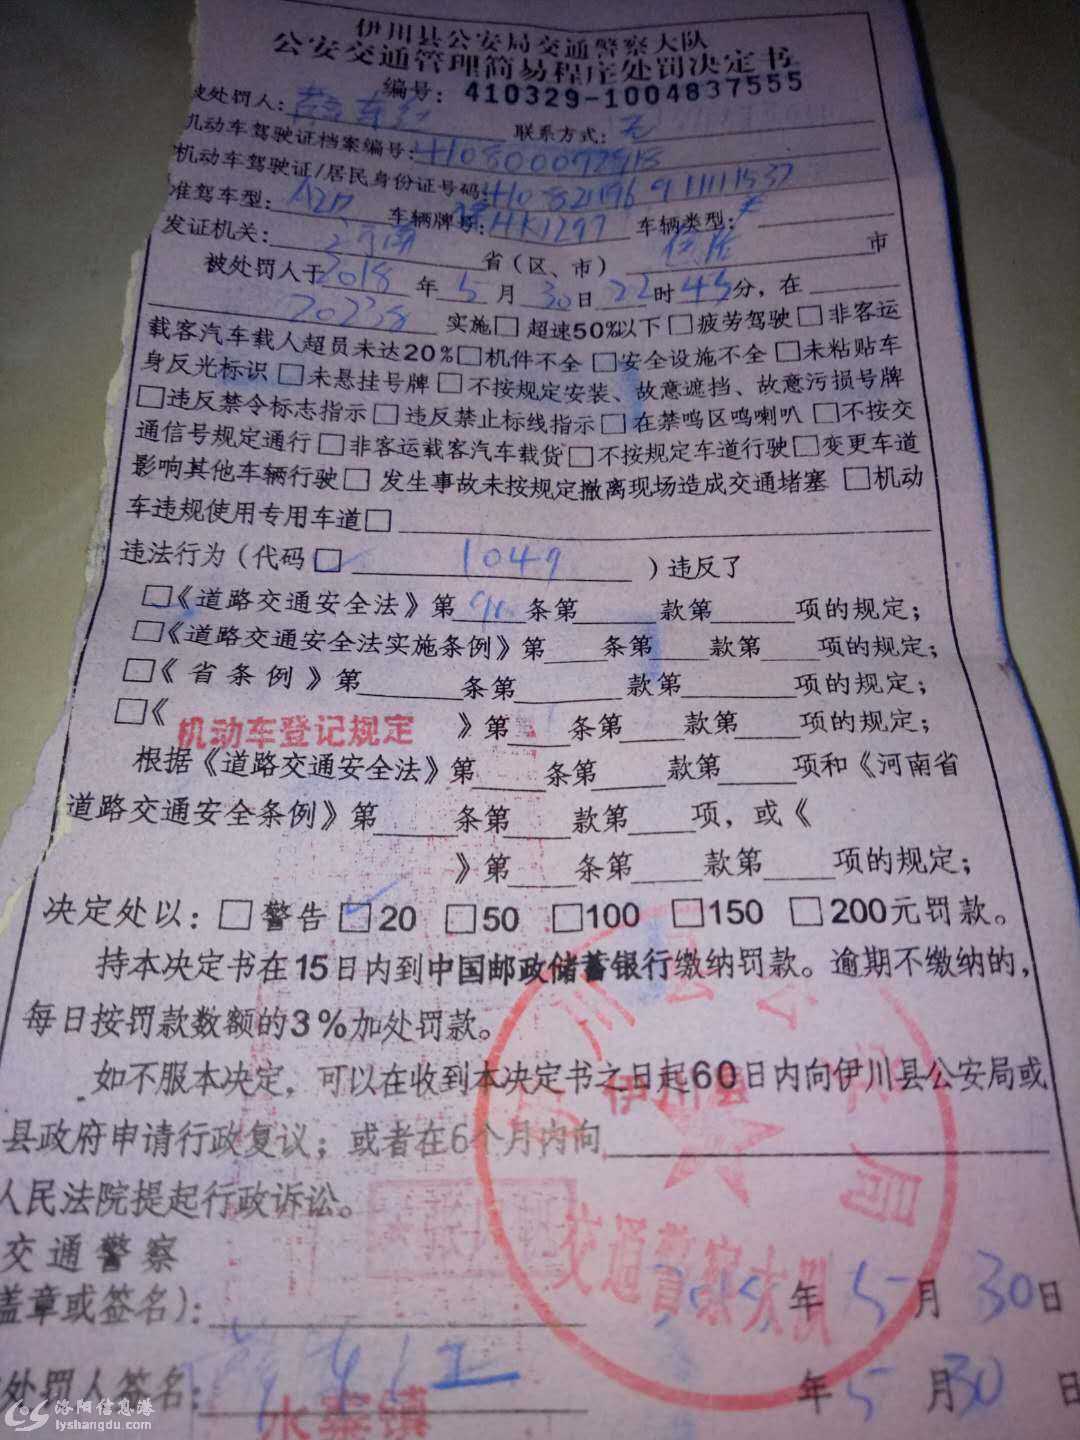 伊川县公安局交通警察大队
公安交通管理简易程序处罚决定书
编号：410329-1004837555
被处罚人： 联系方式：无
机动车驾驶证档案编号：
机动车驾驶证/居民身份证号码：
准驾车型：A2D 车辆牌号： 车辆类型：
发证机关：河南 省（区、市） 市
被处罚人于2018年5月30日22时45分，在
实施□超速50%以下□疲劳驾驶□非客运
载客汽车载人超员未达20%□机件不全□安全设施不全□未粘贴车
身反光标识□未悬挂号牌□不按规定安装、故意遮挡、故意污损号牌
□违反禁令标志指示□违反禁止标线指示□在禁鸣区鸣喇叭□不按交
通信号规定通行□非客运载客汽车载货□不按规定车道行驶□变更车道
影响其他车辆行驶□发生事故未按规定撤离现场造成交通堵塞□机动
车违规使用专用车道□
违法行为（代码□ 1049 ）违反了
□《道路交通安全法》第 条第 款第 项的规定；
□《道路交通安全法实施条例》第 条第 款第 项的规定；
□《省条例》第 条第 款第 项的规定；
□《机动车登记规定》第 条第 款第 项的规定；
根据《道路交通安全法》第 条第 款第 项和《河南省
道路交通安全条例》第 条第 款第 项，或《
》第 条第 款第 项的规定；
决定处以：□警告□20 □50 □100 □150 □200元罚款。
持本决定书在15日内到中国邮政储蓄银行缴纳罚款。逾期不缴纳的，
每日按罚款数额的3%加处罚款。
如不服本决定，可以在收到本决定书之日起60日内向伊川县公安局或
县政府申请行政复议；或者在6个月内向 伊川县
人民法院提起行政诉讼。
交通警察
盖章或签名）：
交通警察大队
年5月30日
处罚人签名：
年5月30日
水寨镇
洛阳信息港
lyshangdu.com